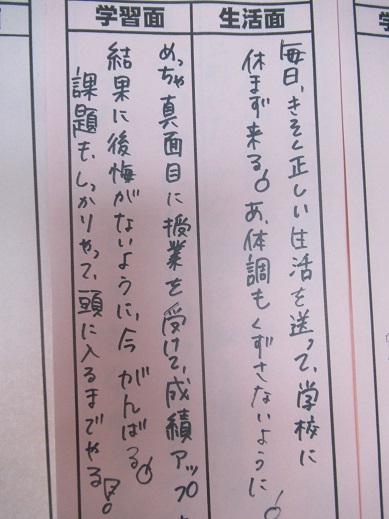 生活面
毎日、きそく正しい生活を送って、学校に
休まず来る!あ、体調もくずさないように!
学習面
めっちゃ真面目に授業を受けて、成績アップ
結果に後悔がないように、今がんばる!
課題も、しっかりやって、頭に入るまでやる!